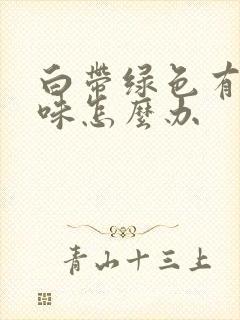 白带绿色有
味怎麼办
青山十三上